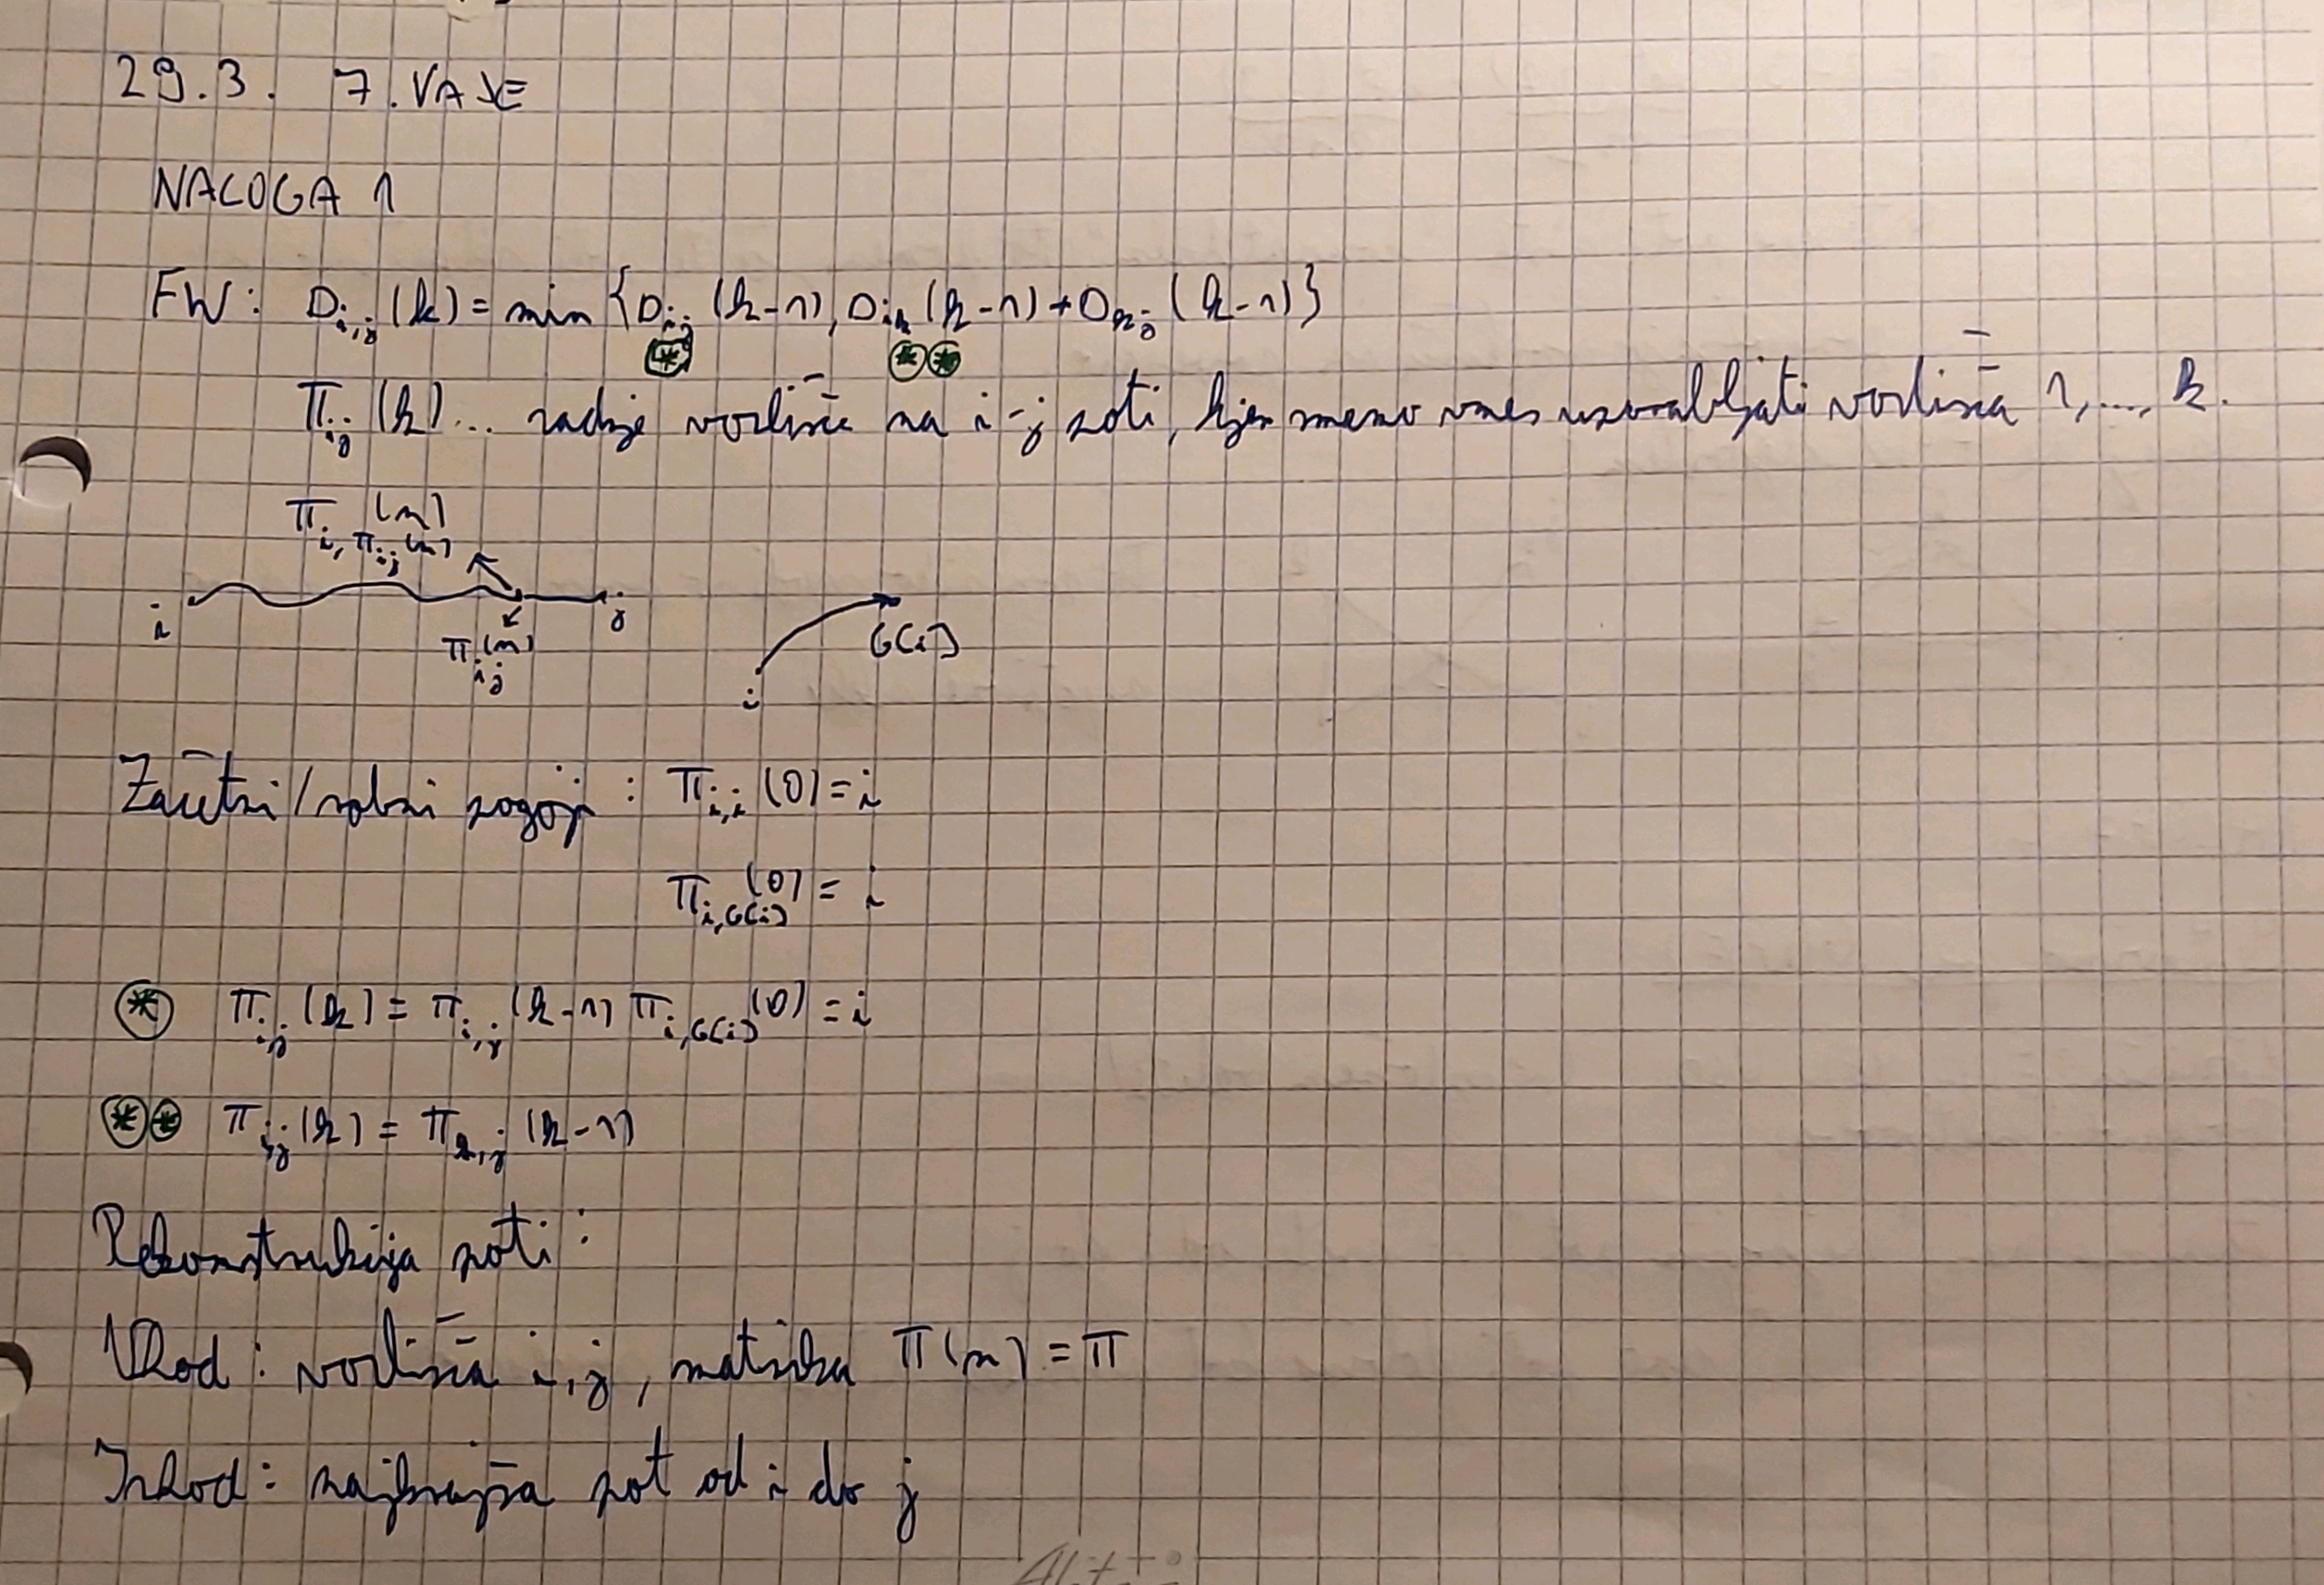 29.3. 7. VAJE
NALOGA 1
FW: D_{i,j}(k) = min {D_{ij}(k-1), D_{ik}(k-1) + D_{kj}(k-1)}
⊛ ⊛⊛
Π_{ij}(k) ... zadnje vozlišče na i-j poti, kjer smemo vmes uporabljati vozlišča 1, ..., k.
Π_{i, Π_{ij}(n)}(n)
i j
Π_{ij}(n)
G[i]
i
Začetni/robni pogoji: Π_{i,i}(0) = i
Π_{i,G[i]}(0) = i
⊛ Π_{i,j}(k) = Π_{i,j}(k-1) Π_{i,G[i]}(0) = i
⊛⊛ Π_{i,j}(k) = Π_{k,j}(k-1)
Rekonstrukcija poti:
Vhod: vozlišča i, j, matrika Π(n) = Π
Izhod: najkrajša pot od i do j